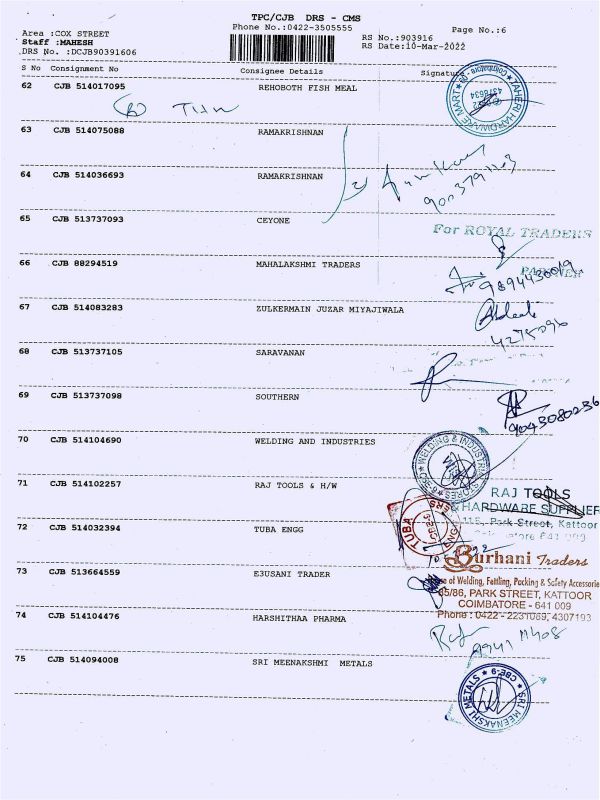 TPC/CJB DRS - CMS
Phone No.:0422-3505555
Page No.:6
Area :COX STREET
RS No.:903916
Staff :MAHESH
RS Date:10-Mar-2022
DRS No. :DCJB90391606
S No Consignment No Consignee Details Signature
62 CJB 514017095 REHOBOTH FISH MEAL
TAHERI HARDWARE MART
Coimbatore
4378634
63 CJB 514075088 RAMAKRISHNAN
64 CJB 514036693 RAMAKRISHNAN
65 CJB 513737093 CEYONE
For ROYAL TRADERS
PARTNER
66 CJB 88294519 MAHALAKSHMI TRADERS
67 CJB 514083283 ZULKERMAIN JUZAR MIYAJIWALA
68 CJB 513737105 SARAVANAN
69 CJB 513737098 SOUTHERN
9043080236
70 CJB 514104690 WELDING AND INDUSTRIES
WELDING & INDUSTRIAL STORES
71 CJB 514102257 RAJ TOOLS & H/W
RAJ TOOLS
& HARDWARE SUPPLIER
115, Park Street, Kattoor
641 009
72 CJB 514032394 TUBA ENGG
TUBA
Burhani Traders
of Welding, Fettling, Packing & Safety Accessorie
73 CJB 513664559 E3USANI TRADER
85/86, PARK STREET, KATTOOR
COIMBATORE - 641 009
Phone : 0422 - 2231089, 4307193
74 CJB 514104476 HARSHITHAA PHARMA
75 CJB 514094008 SRI MEENAKSHMI METALS
SRI MEENAKSHI METALS
CBE-9